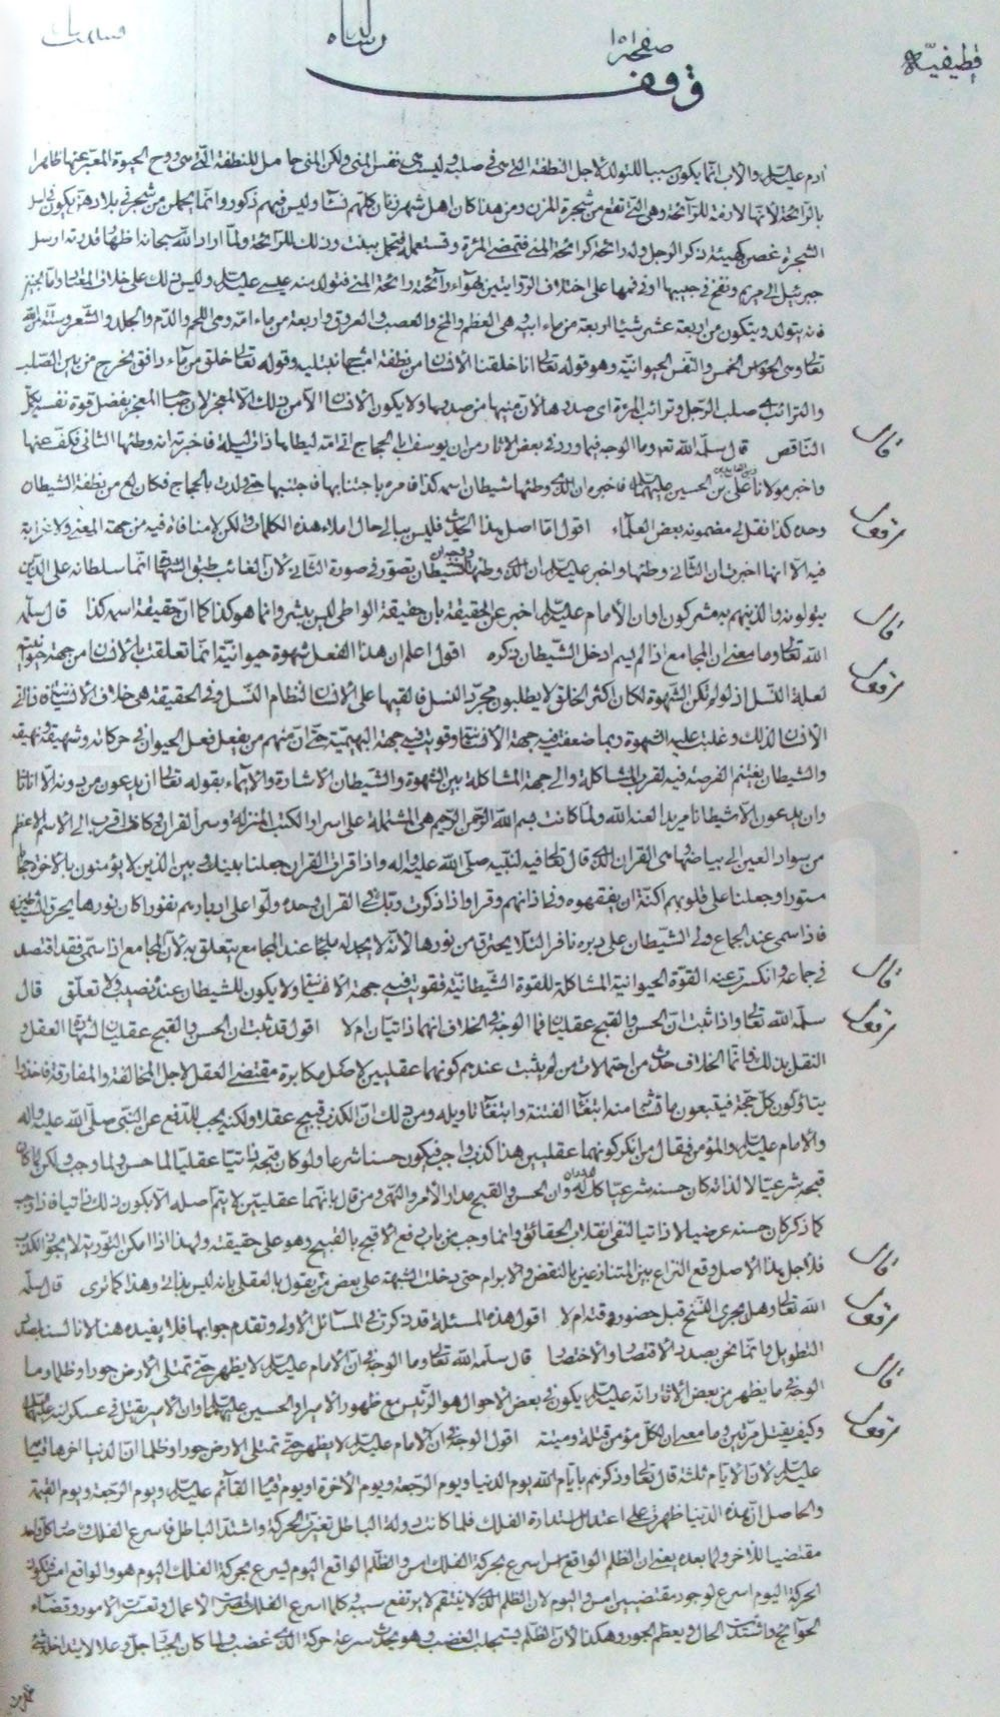 قطيفيّة صفحة ١٥١ رساله
وقف
آدم عليه السلام والأب انّما يكون سببا للتولد لاجل النطفة التى هى فى صلبه وليس هى نفس المنى ولكن المنى حامل للنطفة الّتى هى روح الحيوة المعبّر عنها ظاهرا
بالرّائحة لأنّها لازمة للرّائحة وهى الّتى تقع من شجرة المزن ومن هذا كان اهل شهر زنان كلّهم نسآء وليس فيهم ذكور وانّما يحملن من شجر فى بلادهم يكون فى
الشجرة غصن كهيئة ذكر الرجل وله رائحة كرائحة المنى فتمضى المرئة وتستعمله فتحمل ببنت وذلك للرائحة ولمّا اراد اللّه سبحانه اظهار قدرته ارسل
جبرئيل الى مريم ونفخ فى جيبها او فى فمها على اختلاف الروايتين بهواء رائحته رائحة المنى فتولد منه عيسى عليه السلام وليس ذلك على خلاف المعتاد وامّا الجنين
فانه يتولد ويتكون من اربعة عشر شيئا اربعة من ماء ابيه وهى العظم والمخ والعصب والعروق واربعة من ماء امّه وهى اللحم والدّم والجلد والشعر وستّة من اللّه
تعالى وهى الحواس الخمس والنّفس الحيوانيّة وهو قوله تعالى انا خلقنا الأنسان من نطفة امشاج نبتليه وقوله تعالى خلق من مآء دافق يخرج من بين الصّلب
والترائب صلب الرّجل وترائب المرئة اى صدرها لأنّ منيها من صدرها ولا يكون الأنسان الّا من ذلك الّا لمعجز لأن صاحب المعجز بفضل قوة نفسه يكمّل
النّاقص قال سلّمه اللّه تعالى وما الوجه فيما ورد فى بعض الاثار من ان يوسف ابا الحجاج اتى امّه ليطأها ذات ليلة فاخبرته انه وطئها الثانى فكفّ عنها
واخبر مولانا على بن الحسين عليهما السلام فاخبره ان الذى وطئها شيطان اسمه كذا فامره باجتنابها فاجتنبها حتى ولدت بالحجاج فكان الحج من نطفة الشيطان
وحده كذا نقل لى مضمونه بعض العلمآء اقول امّا اصل هذا الحديث فليس ببالى حال املاء هذه الكلمات ولكن لا منافاة فيه من جهة المعنى ولا غرابة
فيه الّا انها اخبرت ان الثانى وطئها واخبر عليه السلام ان الذى وطئها الشيطان تصوّر فى صورة الثانى لأن الغائب طبق الشاهد انّما سلطانه على الّذين
يتولونه والّذين هم به مشركون او ان الأمام عليه السلام اخبر عن الحقيقة بان حقيقة الواطى ليس ببشر وانما هو كذا كما انّ حقيقة اسمه كذا قال سلّمه
اللّه تعالى وما معنى ان المجامع اذا لم يسم ادخل الشيطان ذكره اقول اعلم ان هذا الفعل شهوة حيوانيّة انّما تعلقت بالأنسان من جهة حيوانيته
لعلة النّسل اذ لو لم تكن الشّهوة لكان اكثر الخلق لا يطلبون مجرّد النسل فالقيها على الأنسان لنظام النّسل وفى الحقيقة هى خلاف الأنسانيّة فاذا اتى
الأنسان لذلك وغلبت عليه الشهوة ربما ضعفت فيه جهة الأنسانية وقويت فيه جهة البهيميّة حتى انّ منهم من يفعل فعل الحيوان فى حركاته وشهيقه ونهيقه
والشيطان يغتنم الفرصة فيه لقرب المشاكلة والى جهة المشاكلة بين الشهوة والشيطان الاشارة والايماء بقوله تعالى ان يدعون من دونه الّا اناثا
وان يدعون الّا شيطانا مريدا لعنه اللّه ولمّا كانت بسم اللّه الرّحمن الرّحيم هى المشتملة على اسرار الكتب المنزلة وسرّ القران وكانت اقرب الى الاسم الاعظم
من سواد العين الى بياضها وهى القران الّذى قال تعالى فيه لنبيّه صلّى اللّه عليه واله واذا قرات القران جعلنا بينك وبين الّذين لا يؤمنون بالاخرة حجابا
مستورا وجعلنا على قلوبهم اكنّة ان يفقهوه وفى اذانهم وقرا واذا ذكرت ربّك فى القران وحده ولّوا على ادبارهم نفورا كان نورها يحرق الشياطين
فاذا سمى عند الجماع ولى الشّيطان على دبره نافرا لئلّا يحترق من نورها لأنّه لا يجد له ملجأ عند المجامع يتعلق به لأن المجامع اذا سمّى فقد اقتصد
فى جماعه وانكسرت عنه القوّة الحيوانية المشاكلة للقوة الشّيطانيّة فقويت فيه جهة الأنسانية ولا يكون للشيطان عنده نصيب ولا تعلّق قال
سلّمه اللّه تعالى واذا ثبت انّ الحسن والقبح عقليان فما الوجه فى الخلاف انهما ذاتيّان ام لا اقول قد ثبت ان الحسن والقبح عقليان لشهادة العقل و
النقل بذلك وانّما الخلاف حدث من احتمالات من لم يثبت عندهم كونهما عقليين لاصل مكابرة مقتضى العقل لاجل المخالفة والمفارقة فاخذوا
يتاوّلون كلّ حجّة فيتبعون ما تشابه منه ابتغآء الفتنة وابتغآء تاويله ومن ذلك انّ الكذب قبيح عقلا ولكنه يجب للدّفع عن النّبى صلّى اللّه عليه واله
والامام عليه السلام والمؤمن فقال من انكر كونهما عقليين هذا كذب واجب فيكون حسنا شرعا ولو كان قبحه ذاتيّا عقليّا لما حسن ولما وجب ولكن لمّا كان
قبحه شرعيّا لا لذاته كان حسنه شرعيّا كل فى مورده وان الحسن والقبح مدار الأمر والنهى ومن قال بانّهما عقليّين لا يتم اصله الّا بكون ذلك ذاتيا فاذا وجب
كما ذكر كان حسنه عرضيا لا ذاتيا لنفى انقلاب الحقائق وانما وجب من باب دفع الأقبح بالقبيح وهو على حقيقته ولهذا اذا امكن التورية لا يجوز الكذب
فلأجل هذا الأصل وقع النزاع بين المتنازعين بالنقض والابرام حتى دخلت الشبهة على بعض من يقول بالعقلى بانه ليس بذاتى وهذا كما ترى قال سلّمه
اللّه تعالى وهل يجرى النّسخ قبل حضور وقته ام لا اقول هذه المسئلة قد ذكرت فى المسائل الأولى وتقدم جوابها فلا يفيده هنا لانا لسنا بصدد
التطويل وانّما نحن بصدد الأقتصار والأختصار قال سلّمه اللّه تعالى وما الوجه فى انّ الامام عليه السلام لا يظهر حتى تمتلى الأرض جورا وظلما وما
الوجه فى ما يظهر من بعض الاثار انّه عليه السلام يكون فى بعض الاحوال هو الرّئيس مع ظهور الامير والحسين عليهما السلام وان الأمير يقتل فى عسكر ابنه عليهما السلام
وكيف يقتل مرّتين وما معنى ان لكل مؤمن قتلة وميتة اقول الوجه فى ان الامام عليه السلام لا يظهر حتى تمتلى الارض جورا وظلما انّ الدنيا اخرها قيامه
عليه السلام لأن الأيام ثلثة قال تعالى وذكرهم بايّام اللّه يوم الدنيا ويوم الرّجعة ويوم الأخرة او يوم قيام القآئم عليه السلام ويوم الرّجعة ويوم القيمة
والحاصل ان هذه الدّنيا ظهرت على اعتدال استدارة الفلك فلما كانت دولة الباطل تغيّرت الحركة واشتدّ الباطل فاسرع الفلك وصار كل واحد
مقتضيا للأخر ولما بعده يعنى ان الظلم الواقع امس اسرع بحركة الفلك امس والظّلم الواقع اليوم يسرع بحركة الفلك اليوم هو والواقع امس فتكون
الحركة اليوم اسرع لوجود مقتضيين امس واليوم لان الظلم الذى لا ينتقم لا يرتفع سببه وكلما اسرع الفلك قصرت الأعمال وتعسّرت الامور وقضاء
الحوائج واشتدّت الحال ويعظم الجور وهكذا لأن الظّلم يستجلب الغضب وهو يحدث سرعة حركة الّذى غضب ولما كان الجبّار جلّ وعلا لا يبتدء
قال
اقول
قال
اقول
قال
اقول
قال
اقول
قال
اقول